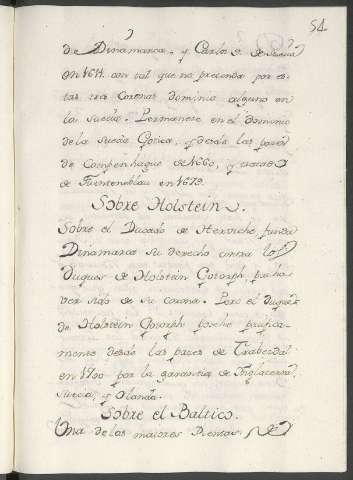 54
de Dinamarca, y Carlos 9. de Suecia
en 1611. con tal que no pretenda por es-
tas tres Coronas dominio alguno en
la Suecia. Permanese en el dominio
de la Suecia Gotica, desde las pazes
de Compenhague de 1660, y tratado
de Fuenteneblau en 1679.
Sobre Holstein.
Sobre el Ducado de funda
Dinamarca su derecho contra los
Duques de Holstein Gotorph, por ha-
ver sido de su corona. Pero el Duque
de Holstein Gotorph posehe pacifica-
mente desde las pazes de Trabendal
en 1700 por la garantia de Inglaterra,
Suecia, y Olanda.
Sobre el Baltico.
Una de las maiores